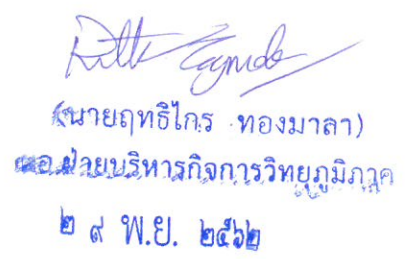 (นายฤทธิไกร ทองมาลา)
ผอ.ฝ่ายบริหารกิจการวิทยุภูมิภาค
๒ ๙ พ.ย. ๒๕๖๒